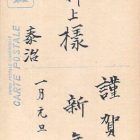 謹賀
新年
井上樣
一月元旦
泰治
CARTE POSTALE